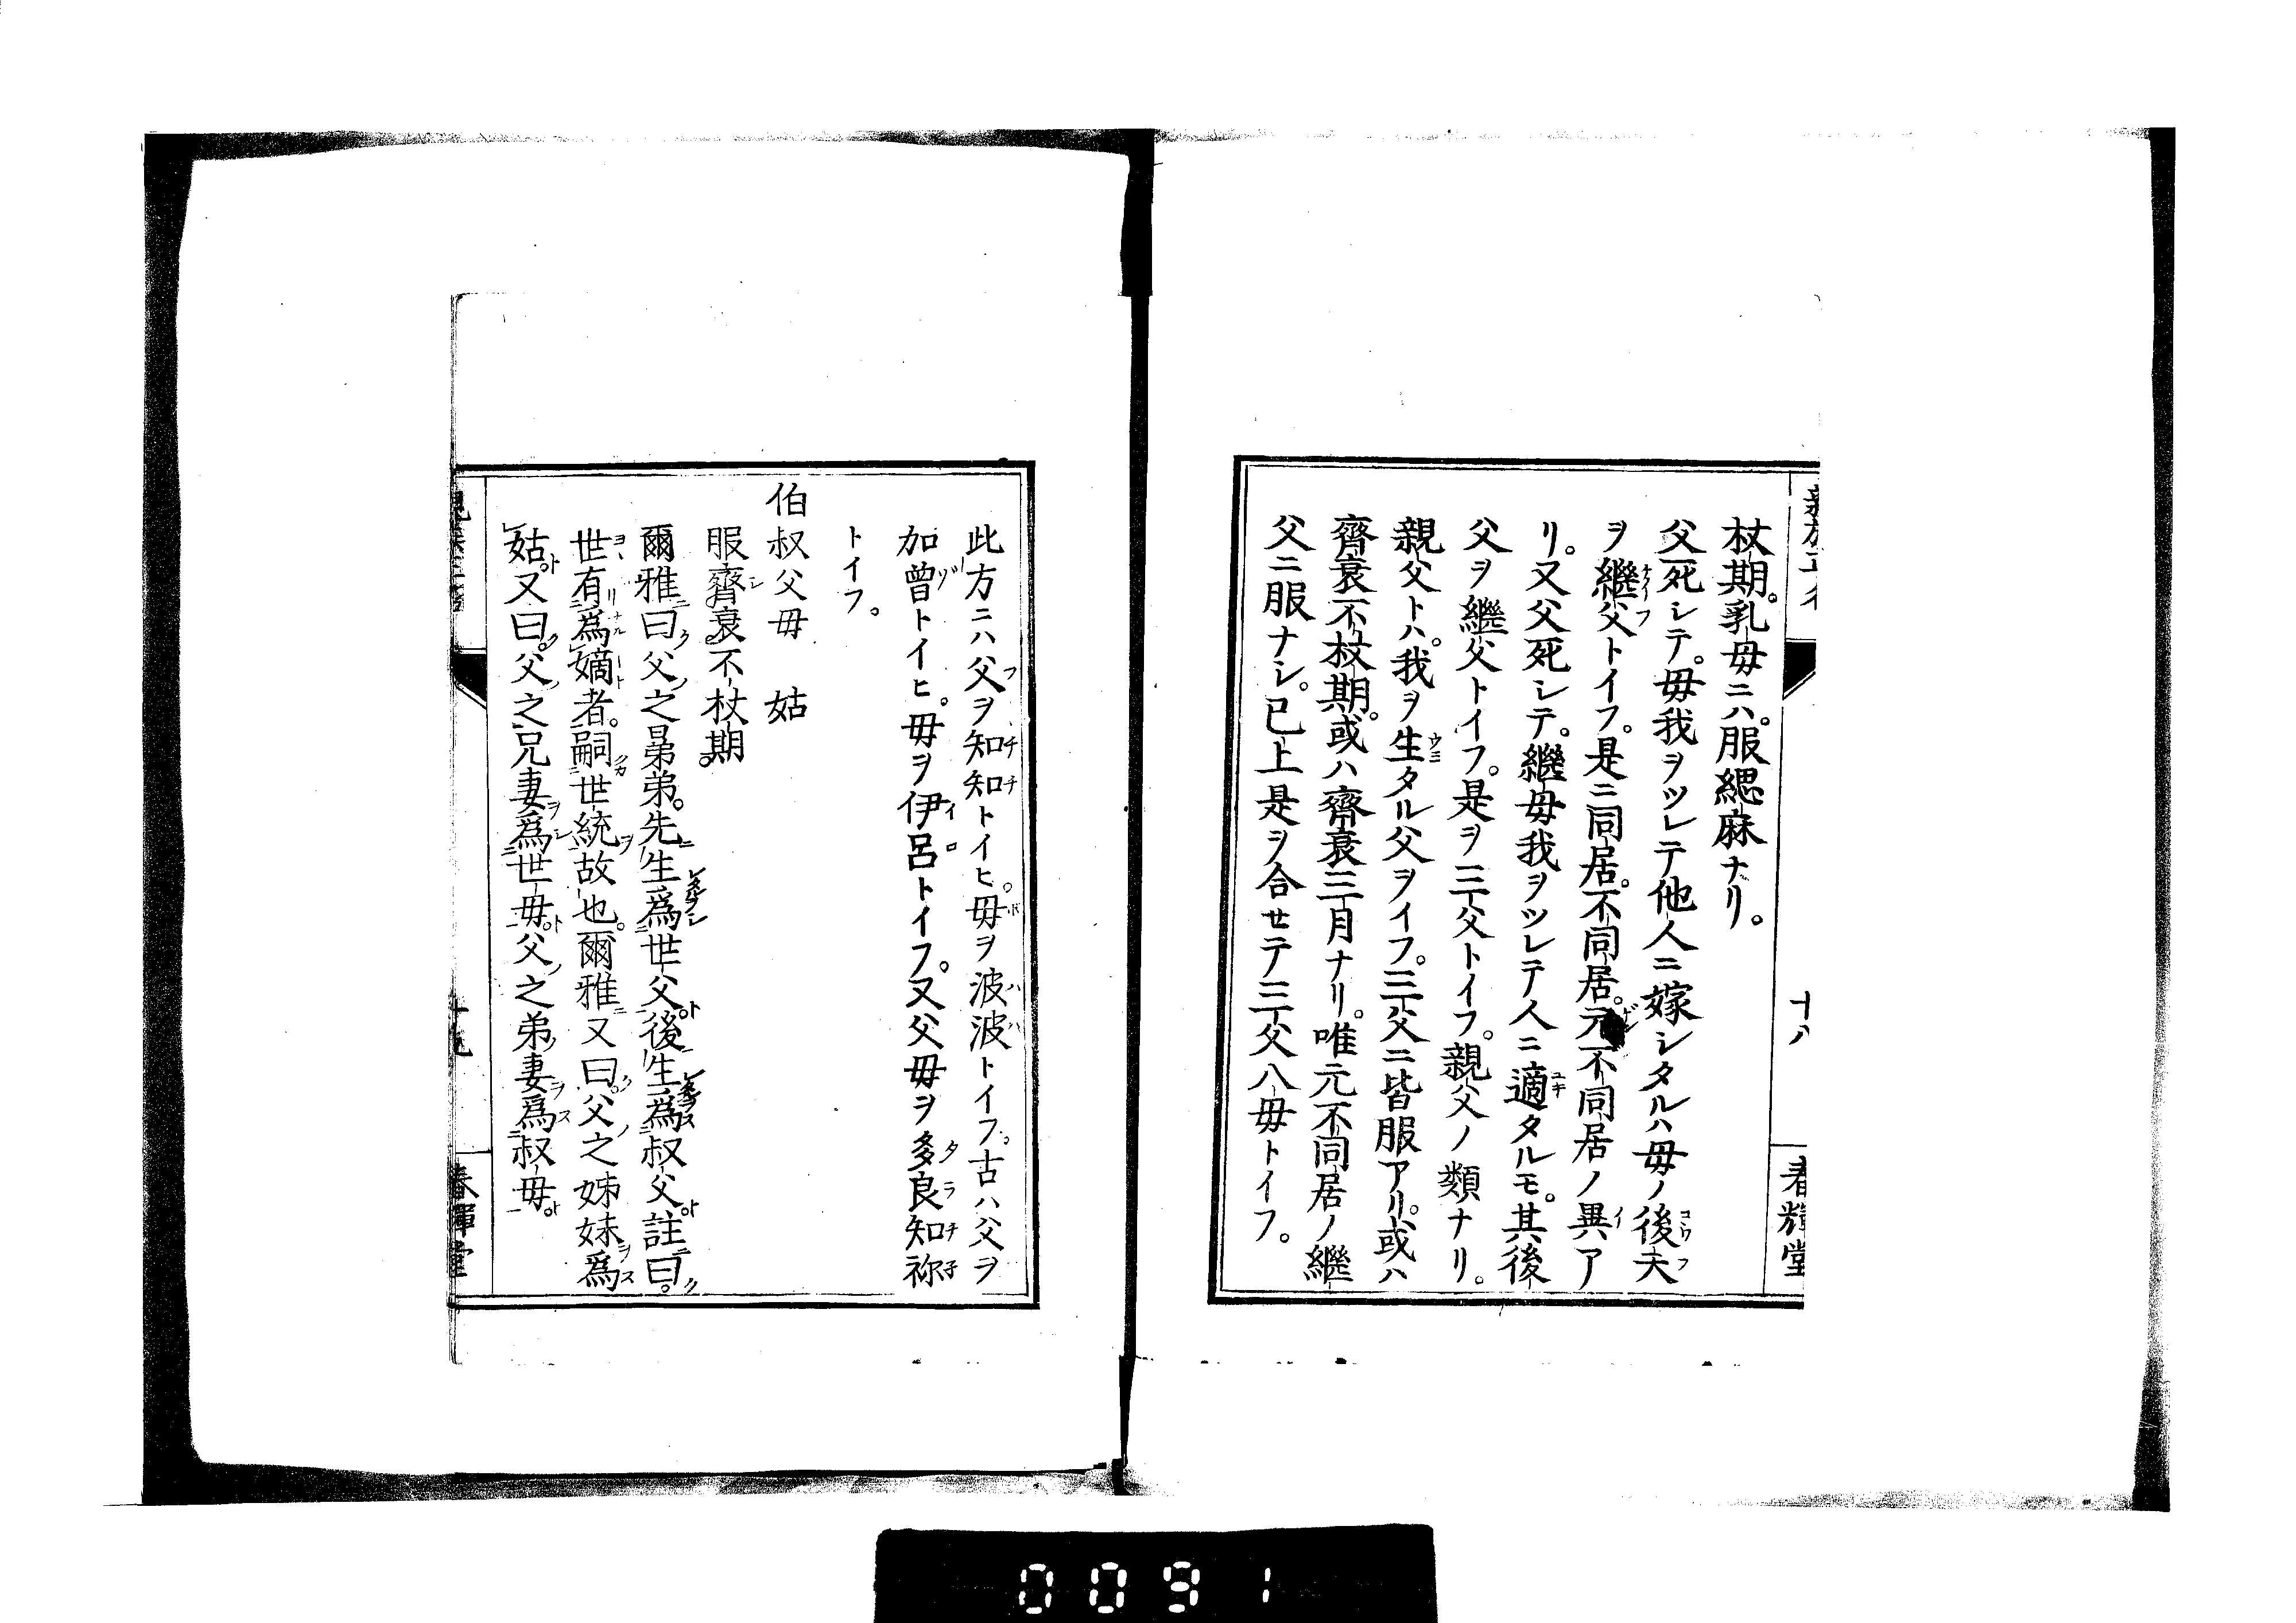 杖期。乳母ニハ。服緦麻ナリ。
父死シテ。母我ヲツレテ他人ニ嫁シタルハ母ノ後夫
ヲ繼父トイフ。是ニ同居。不同居。元不同居ノ異ア
リ。又父死シテ。繼母我ヲツレテ人ニ適タルモ。其後
父ヲ繼父トイフ。是ヲ三父トイフ。親父ノ類ナリ。
親父トハ。我ヲ生タル父ヲイフ。三父ニ皆服アリ。或ハ
齊衰不杖期。或ハ齊衰三月ナリ。唯元不同居ノ繼
父ニ服ナシ。已上是ヲ合セテ三父八母トイフ。
十八
春輝堂
此方ニハ父ヲ知知トイヒ。母ヲ波波トイフ。古ハ父ヲ
加曾トイヒ。母ヲ伊呂トイフ。又父母ヲ多良知祢
トイフ。
伯叔父母　姑
服齊衰不杖期。
爾雅曰父之晜弟。先生爲世父。後生爲叔父。註曰。
世有爲嫡者。嗣世統故也。爾雅又曰。父之姊妹爲
姑。又曰。父之兄妻爲世母。父之弟妻爲叔母。
春輝堂
0091